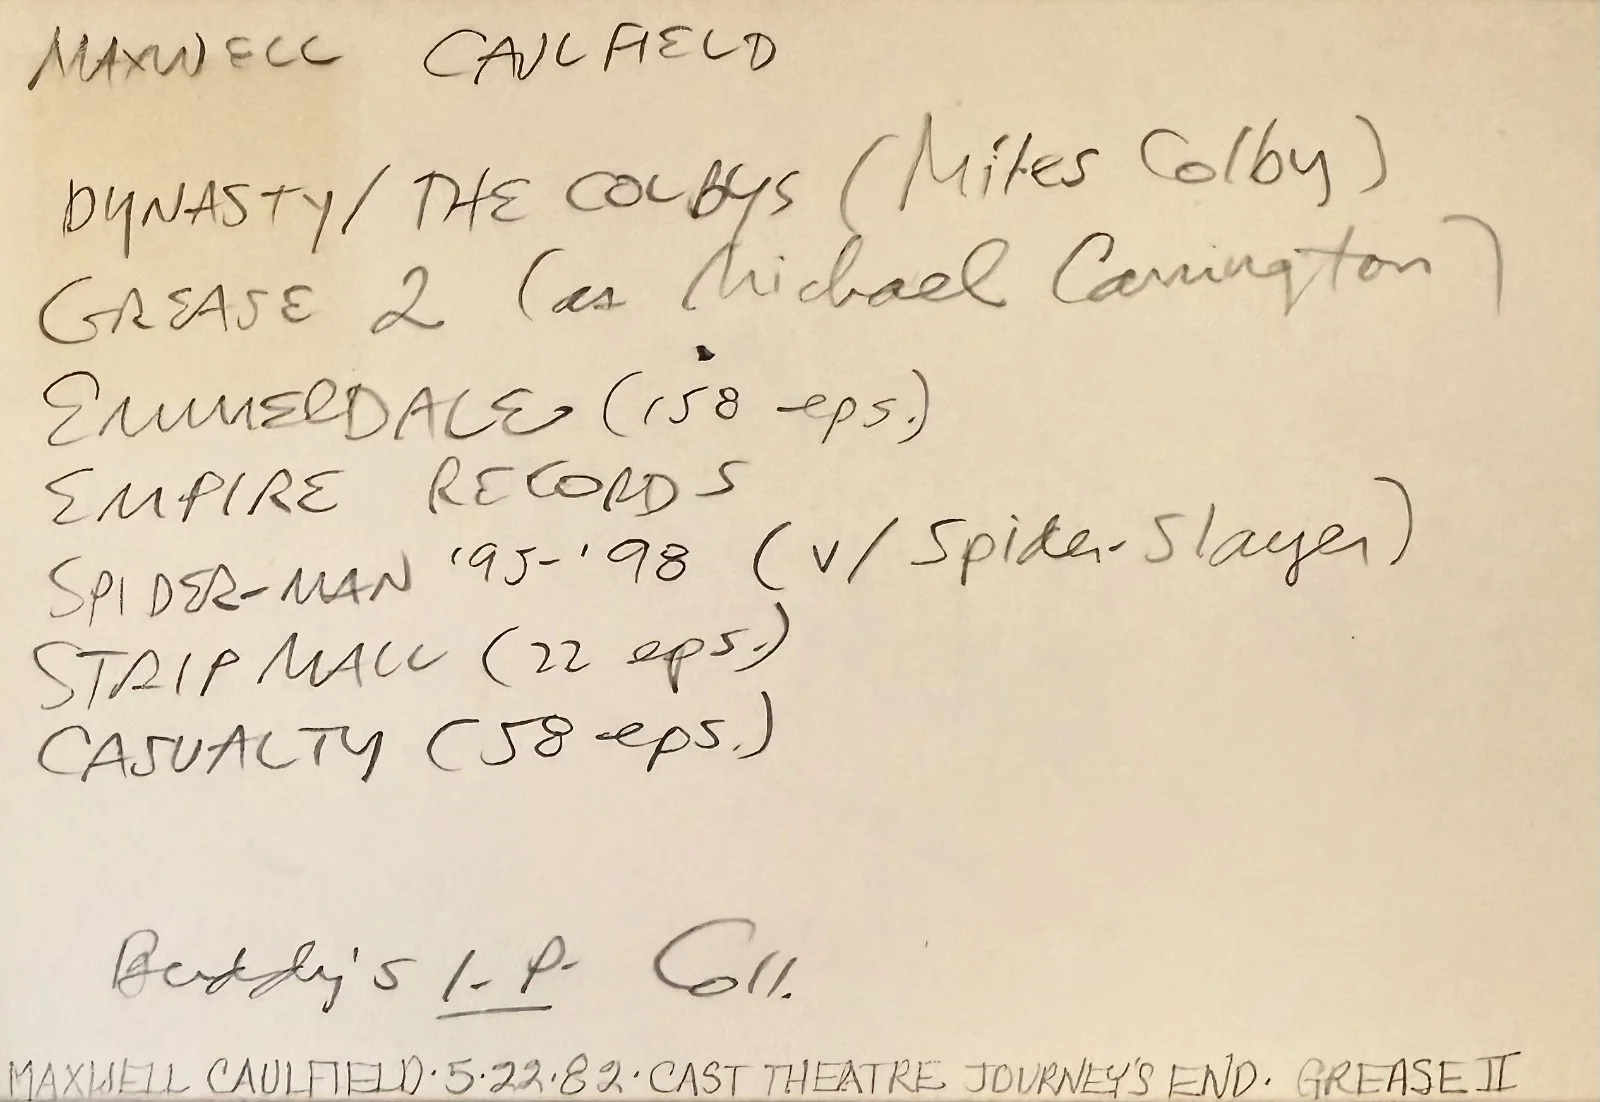 MAXWELL CAULFIELD
DYNASTY/THE COLBYS (Miles Colby)
GREASE 2 (as Michael Carrington)
EMMERDALE (158 eps.)
EMPIRE RECORDS
SPIDER-MAN '95-'98 (v/ Spider-Slayer)
STRIP MALL (22 eps.)
CASUALTY (58 eps.)
Buddy's I.P. Coll.
MAXWELL CAULFIELD·5·22·82·CAST THEATRE JOURNEY'S END· GREASE II